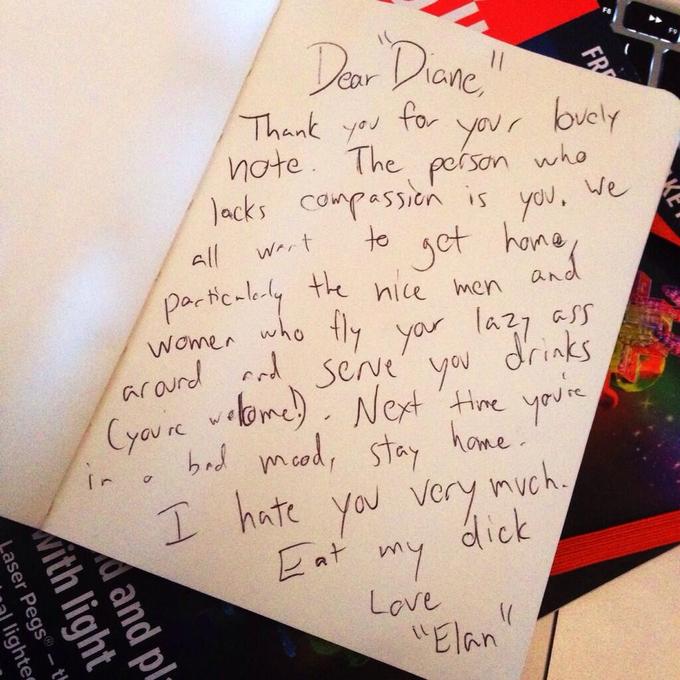 Dear "Diane,"
Thank you for your lovely
note. The person who
lacks compassion is you. We
all want to get home,
particularly the nice men and
women who fly your lazy ass
around and serve you drinks
(you're welcome!). Next time you're
in a bad mood, stay home.
I hate you very much.
Eat my dick
Love
"Elan"
F8
F9
FR
KET
d and pl
with light
Laser Pegs® – t
nal lighte